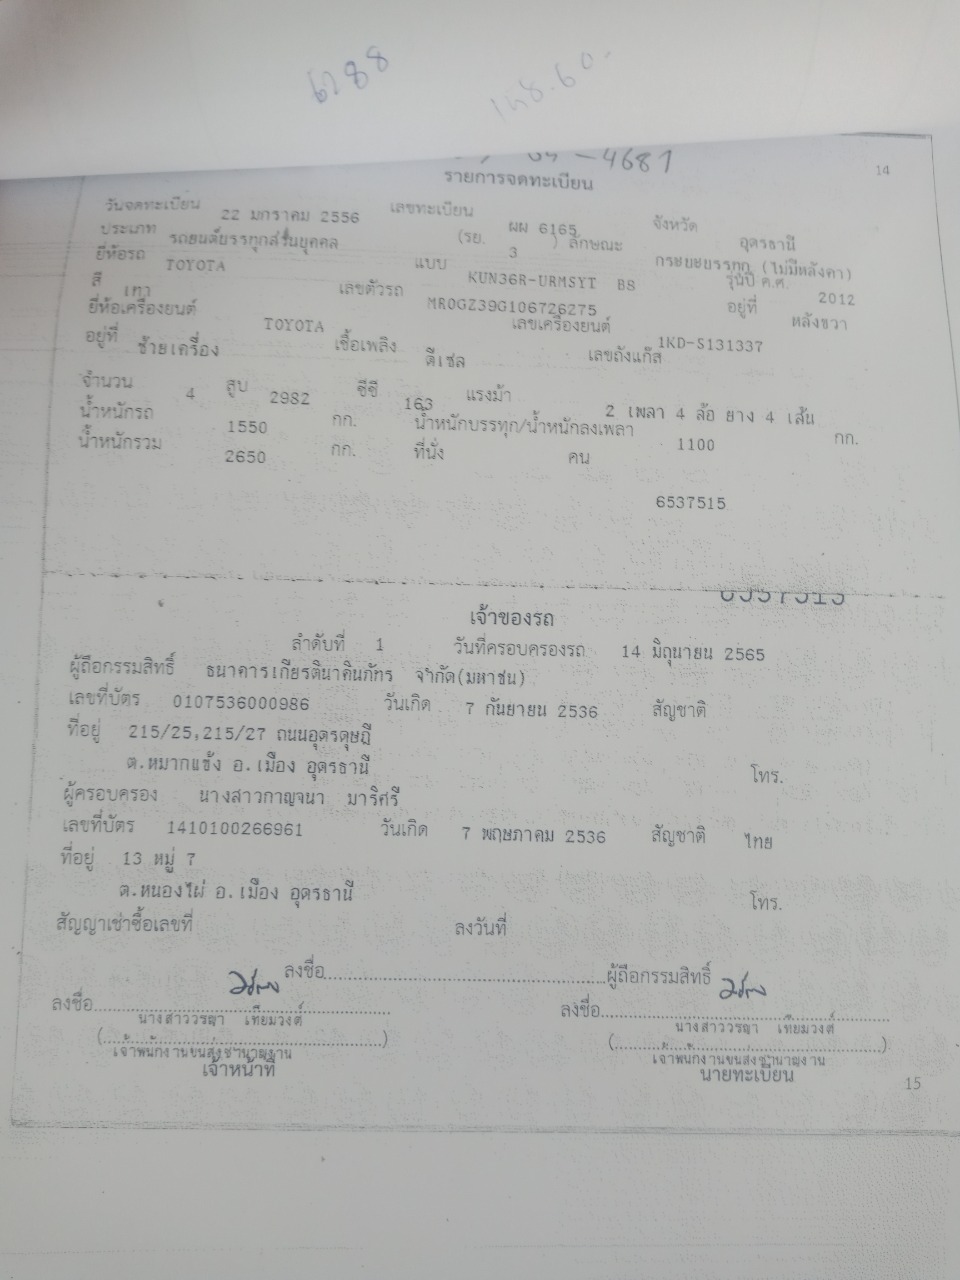 6288
-4681
14
รายการจดทะเบียน
วันจดทะเบียน 22 มกราคม 2556 เลขทะเบียน ผผ 6165 จังหวัด อุดรธานี
ประเภท รถยนต์บรรทุกส่วนบุคคล (รย. 3 ) ลักษณะ กระบะบรรทุก (ไม่มีหลังคา)
ยี่ห้อรถ TOYOTA แบบ KUN36R-URMSYT BS รุ่นปี ค.ศ. 2012
สี เทา เลขตัวรถ MR0GZ39G106726275 อยู่ที่ หลังขวา
ยี่ห้อเครื่องยนต์ TOYOTA เลขเครื่องยนต์ 1KD-S131337
อยู่ที่ ซ้ายเครื่อง เชื้อเพลิง ดีเซล เลขถังแก๊ส
จำนวน 4 สูบ 2982 ซีซี 163 แรงม้า 2 เพลา 4 ล้อ ยาง 4 เส้น
น้ำหนักรถ 1550 กก. น้ำหนักบรรทุก/น้ำหนักลงเพลา 1100 กก.
น้ำหนักรวม 2650 กก. ที่นั่ง คน
6537515
เจ้าของรถ
ลำดับที่ 1 วันที่ครอบครองรถ 14 มิถุนายน 2565
ผู้ถือกรรมสิทธิ์ ธนาคารเกียรตินาคินภัทร จำกัด(มหาชน)
เลขที่บัตร 0107536000986 วันเกิด 7 กันยายน 2536 สัญชาติ
ที่อยู่ 215/25,215/27 ถนนอุดรดุษฎี
ต.หมากแข้ง อ.เมือง อุดรธานี โทร.
ผู้ครอบครอง นางสาวกาญจนา มาริศรี
เลขที่บัตร 1410100266961 วันเกิด 7 พฤษภาคม 2536 สัญชาติ ไทย
ที่อยู่ 13 หมู่ 7
ต.หนองไผ่ อ.เมือง อุดรธานี โทร.
สัญญาเช่าซื้อเลขที่ ลงวันที่
ลงชื่อ ผู้ถือกรรมสิทธิ์
ลงชื่อ ลงชื่อ
นางสาววรญา เทียมวงศ์ นางสาววรญา เทียมวงศ์
( ) ( )
เจ้าพนักงานขนส่งชำนาญงาน เจ้าพนักงานขนส่งชำนาญงาน
เจ้าหน้าที่ นายทะเบียน
15